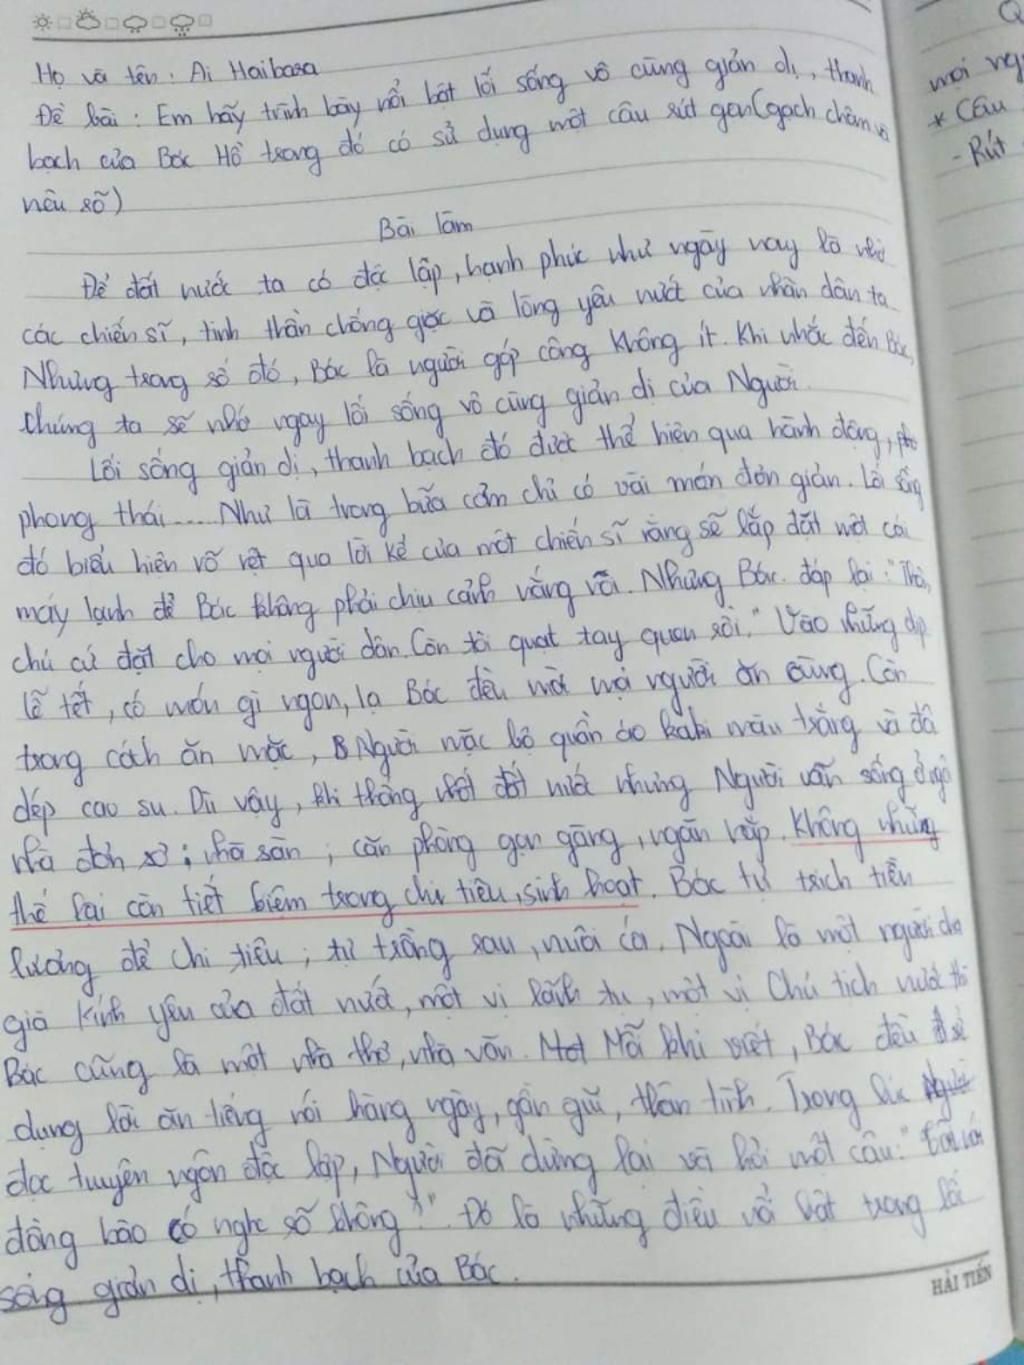 Q
Họ và tên: Ai Haibara
Đề bài: Em hãy trình bày nổi bật lối sống vô cùng giản dị, thanh
bạch của Bác Hồ trong đó có sử dụng một câu rút gọn (gạch chân và
nêu rõ)
Bài làm
Để đất nước ta có độc lập, hạnh phúc như ngày nay là nhờ
các chiến sĩ, tinh thần chống giặc và lòng yêu nước của nhân dân ta.
Nhưng trong số đó, Bác là người góp công không ít. Khi nhắc đến Bác,
chúng ta sẽ nhớ ngay lối sống vô cùng giản dị của Người.
Lối sống giản dị, thanh bạch đó được thể hiện qua hành động,
phong thái.... Như là trong bữa cơm chỉ có vài món đơn giản. Lối sống
đó biểu hiện rõ rệt qua lời kể của một chiến sĩ rằng sẽ lắp đặt một cái
máy lạnh để Bác không phải chịu cảnh vắng vẻ. Nhưng Bác đáp lại: "Thôi,
chú cứ đặt cho mọi người dân. Còn tôi quạt tay quen rồi." Vào những dịp
lễ tết, có món gì ngon, lạ Bác đều mời mọi người ăn cùng. Còn
trong cách ăn mặc, Người mặc bộ quần áo kaki màu trắng và đôi
dép cao su. Dù vậy, khi thống nhất đất nước nhưng Người vẫn sống ở ngôi
nhà đơn sơ; nhà sàn; căn phòng gọn gàng, ngăn nắp. Không những
thế lại còn tiết kiệm trong chi tiêu, sinh hoạt. Bác tự trích tiền
lương để chi tiêu; tự trồng rau, nuôi cá. Ngoài là một người cha
già kính yêu của đất nước, một vị lãnh tụ, một vị Chủ tịch nước thì
Bác cũng là một nhà thơ, nhà văn. Mỗi khi viết, Bác đều sử
dụng lời ăn tiếng nói hàng ngày, gần gũi, thân tình. Trong lúc
đọc tuyên ngôn độc lập, Người đã dừng lại và hỏi một câu: "Tôi nói
đồng bào có nghe rõ không?". Đó là những điều nổi bật trong lối
sống giản dị, thanh bạch của Bác.
HẢI TIẾN
mọi
* Câu
- Rút